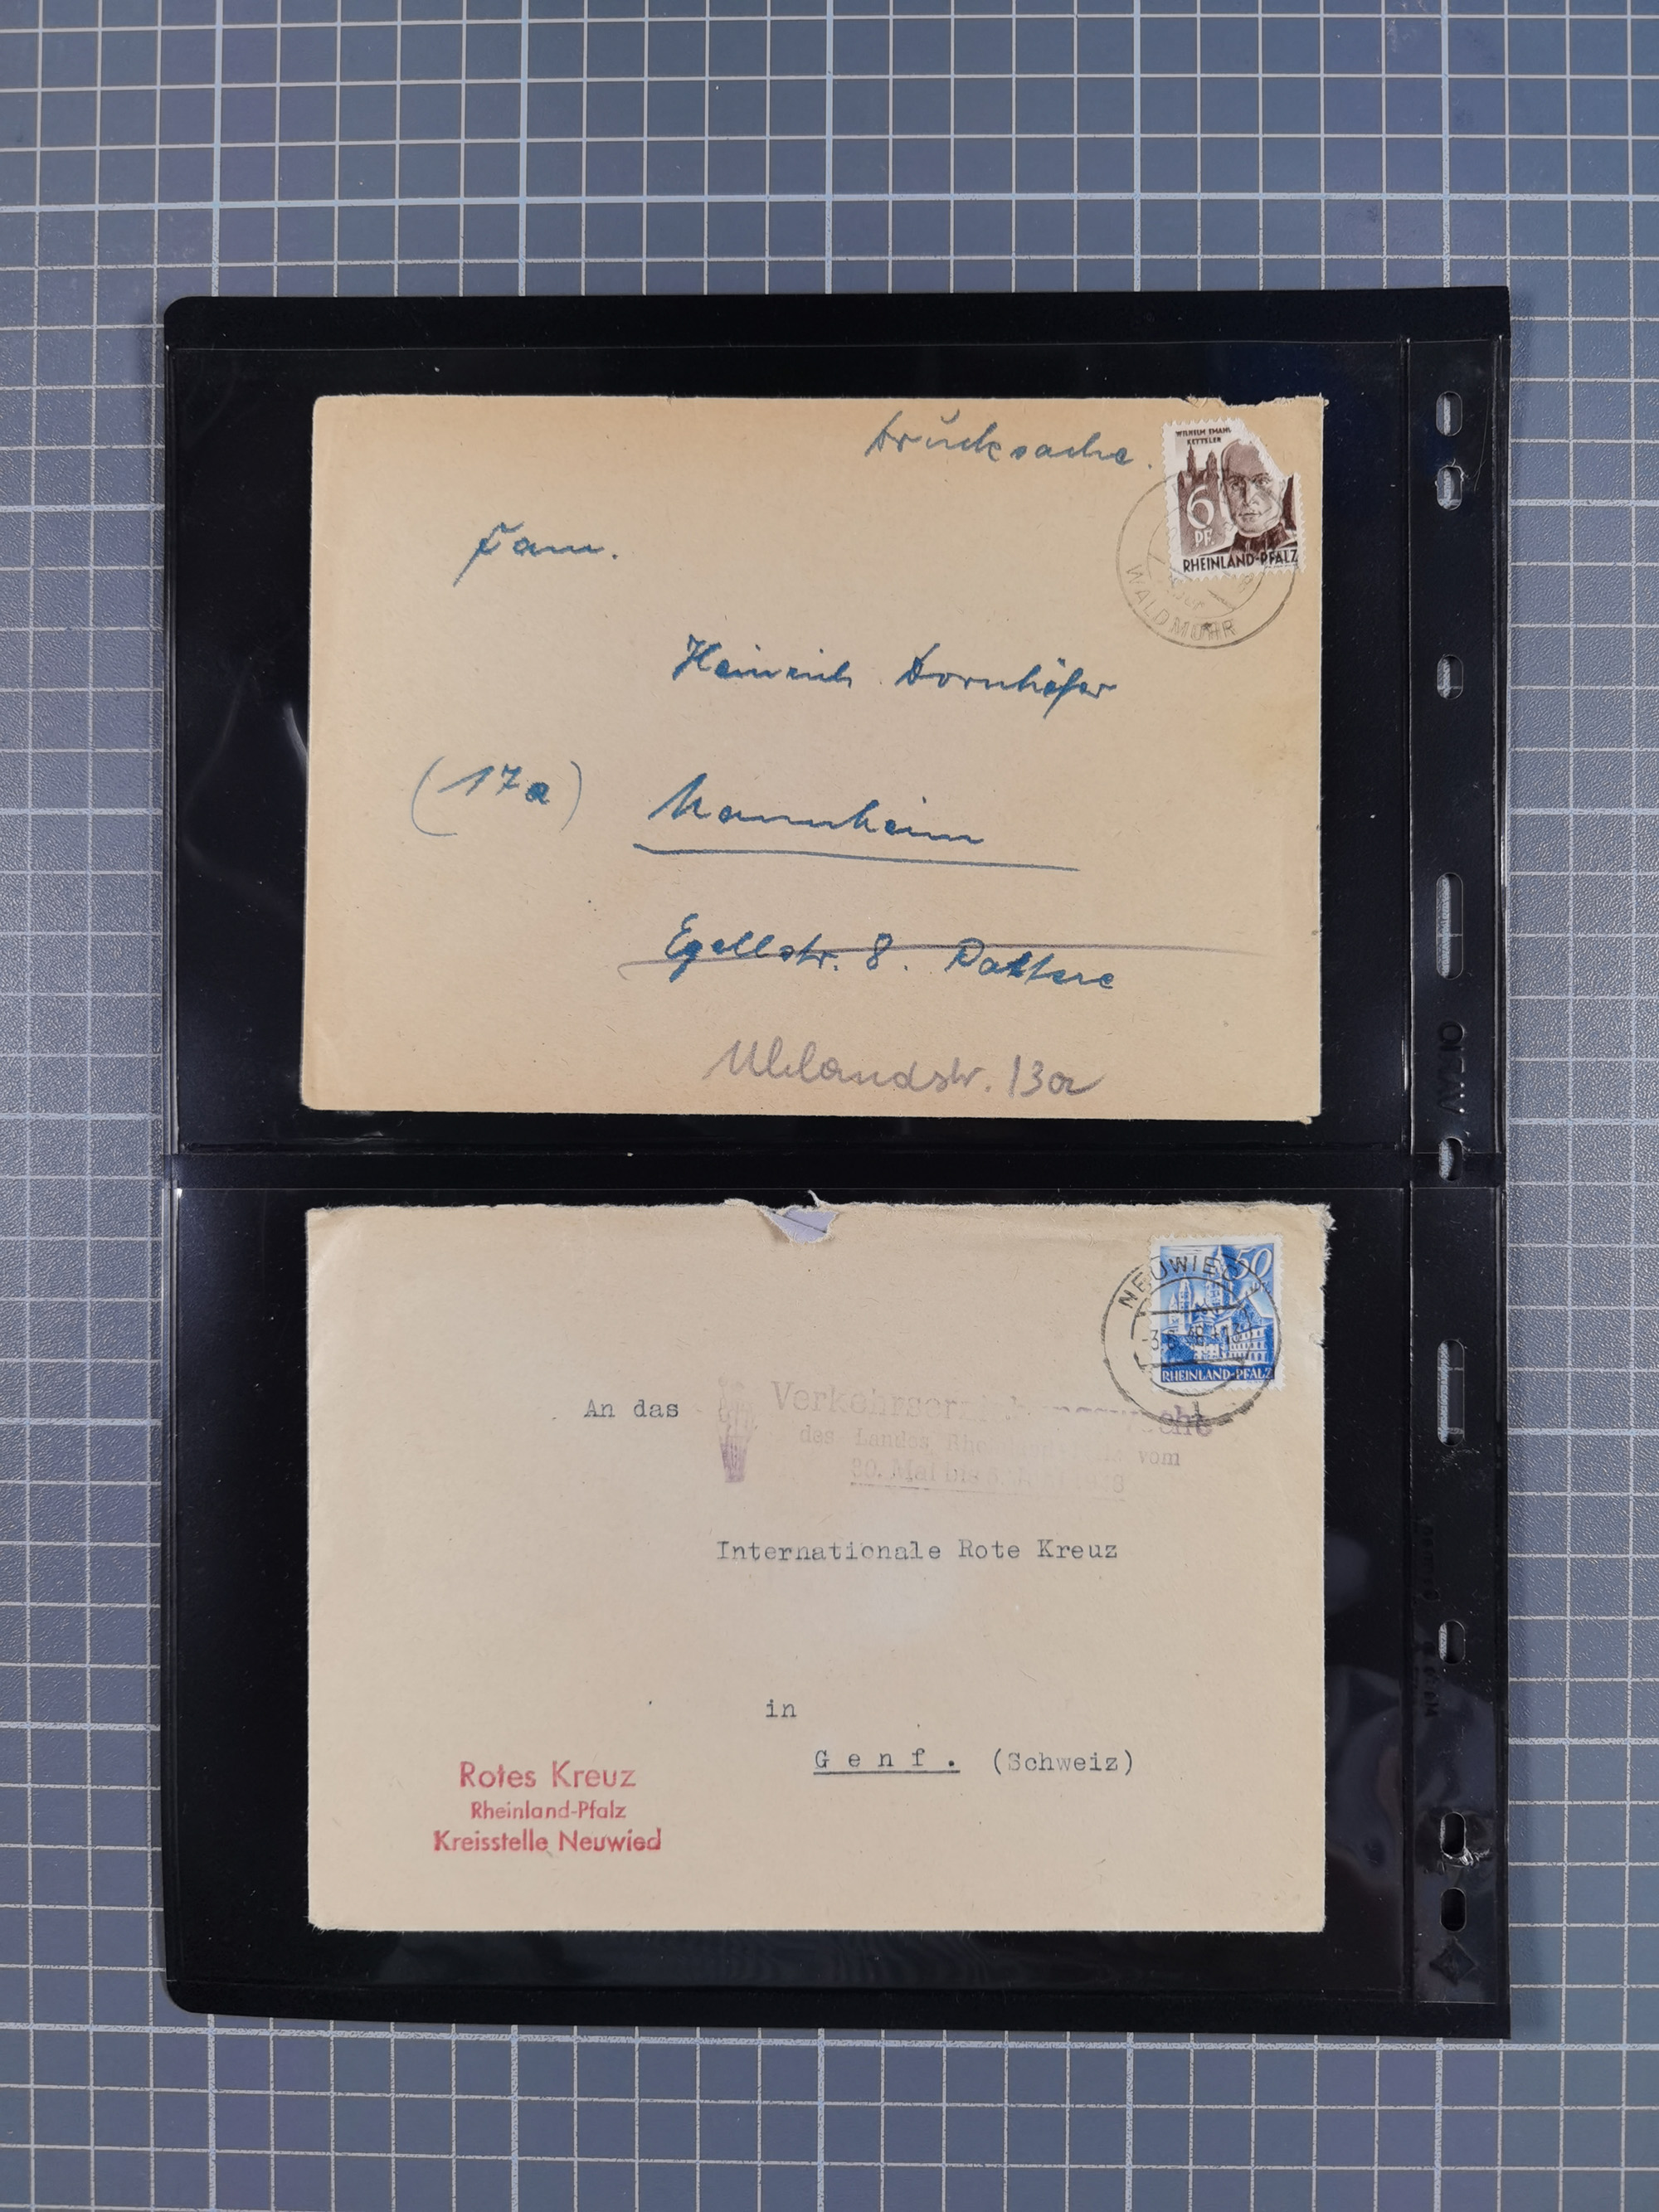 Drucksache.
WILHELM EMANUEL
KETTELER
6
PF.
RHEINLAND-PFALZ
WALDMOHR
Fam.
Heinrich Dornhöfer
(17a) Mannheim
Egellstr. 8. Parterre
Uhlandstr. 13a
50
NEUWIED
RHEINLAND-PFALZ
An das
Verkehrserziehungswoche
des Landes Rheinland-Pfalz vom
30. Mai bis
Internationale Rote Kreuz
in
Genf. (Schweiz)
Rotes Kreuz
Rheinland-Pfalz
Kreisstelle Neuwied